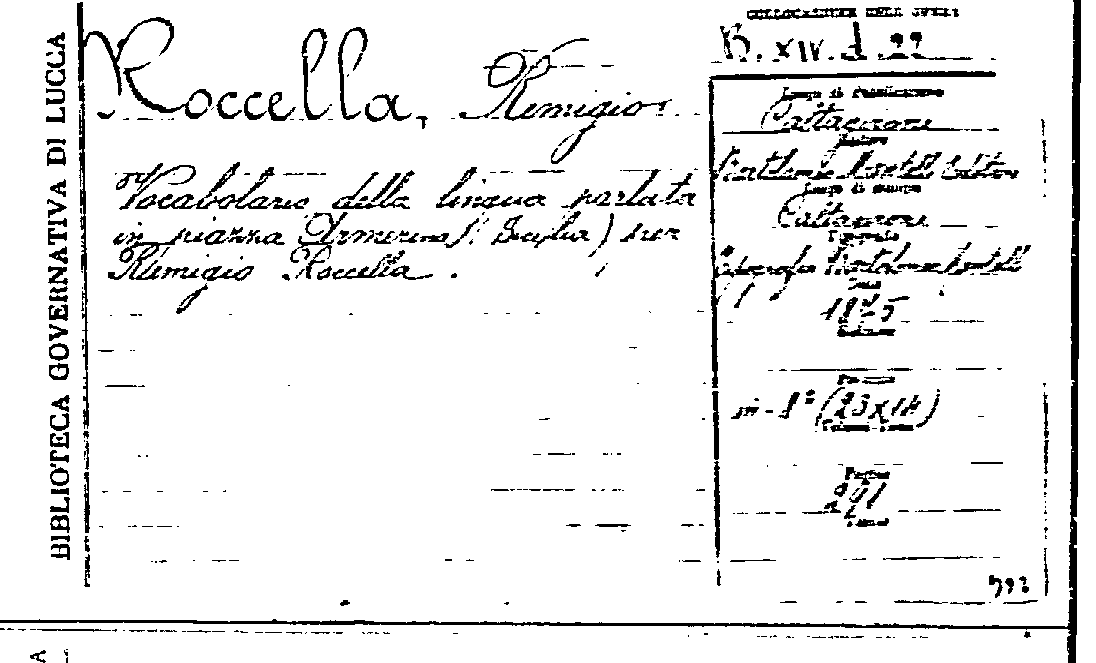 BIBLIOTECA GOVERNATIVA DI LUCCA
Roccella, Remigio
Vocabolario della lingua parlata
in piazza Armerina (Sicilia) per
Remigio Roccella.
COLLOCAZIONE DELL'OPERA
B. XIV. d. 22
Luogo di pubblicazione
Caltagirone
Editore
Bartolomeo Mantelli Editore
Luogo di stampa
Caltagirone
Tipografo
Tipografia Bartolomeo Mantelli
Data
1875
Edizione
Formato
in-8° (23x14)
Pagine
291
792
A